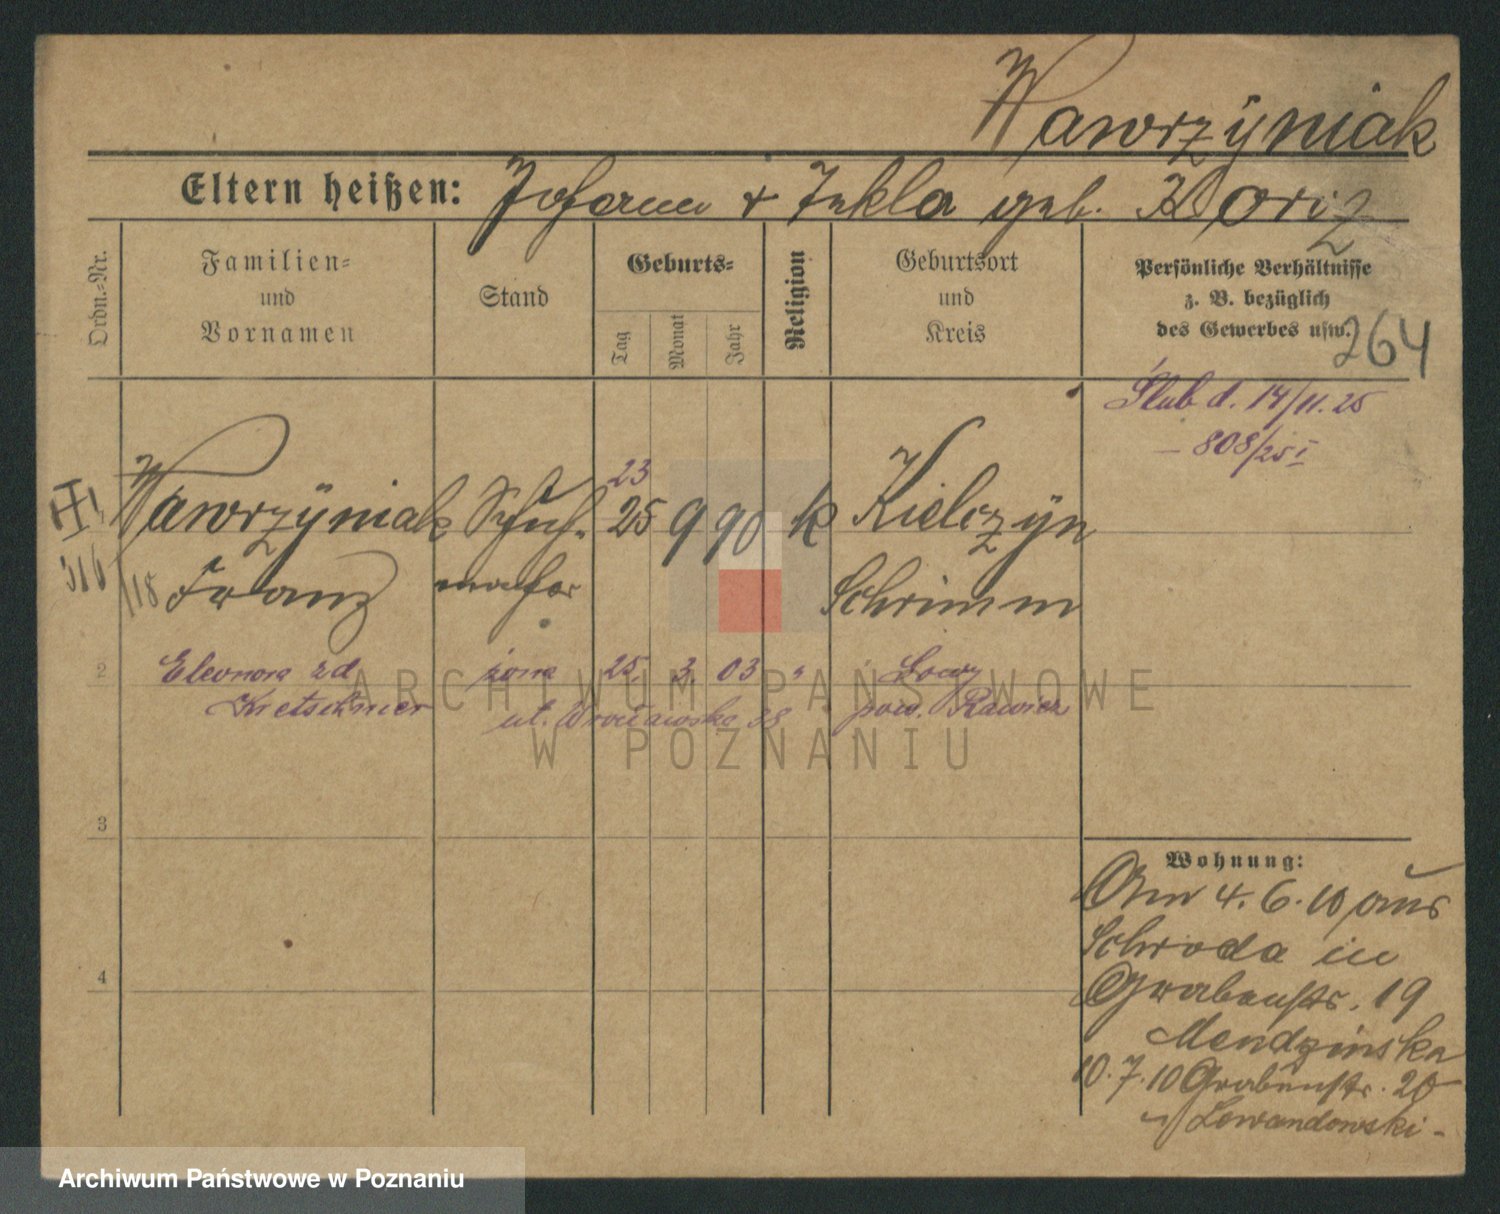 Wawrzyniak
Eltern heißen: Johann + Tekla geb. Koriz
Ordn.-Nr.
Familien-
und
Vornamen
Stand
Geburts-
Tag
Monat
Jahr
Religion
Geburtsort
und
Kreis
Persönliche Verhältnisse
z. B. bezüglich
des Gewerbes usw.
264
Ślub d. 14/11.25
- 808/25 I
23
Wawrzyniak Schuh- 25 9 90 k Kielczyn
316/18 Franz macher Schrimm
2 Eleonora zd żona 25. 3. 03 "
Kretschmer ul. Wrocławska 38 pow. Rawicz
3
4
Wohnung:
Am 4.6.10 aus
Schroda in
Grabenstr. 19
Mendzinska
10.7.10 Grabenstr. 20
Lewandowski -
ARCHIWUM PAŃSTWOWE
W POZNANIU
Archiwum Państwowe w Poznaniu